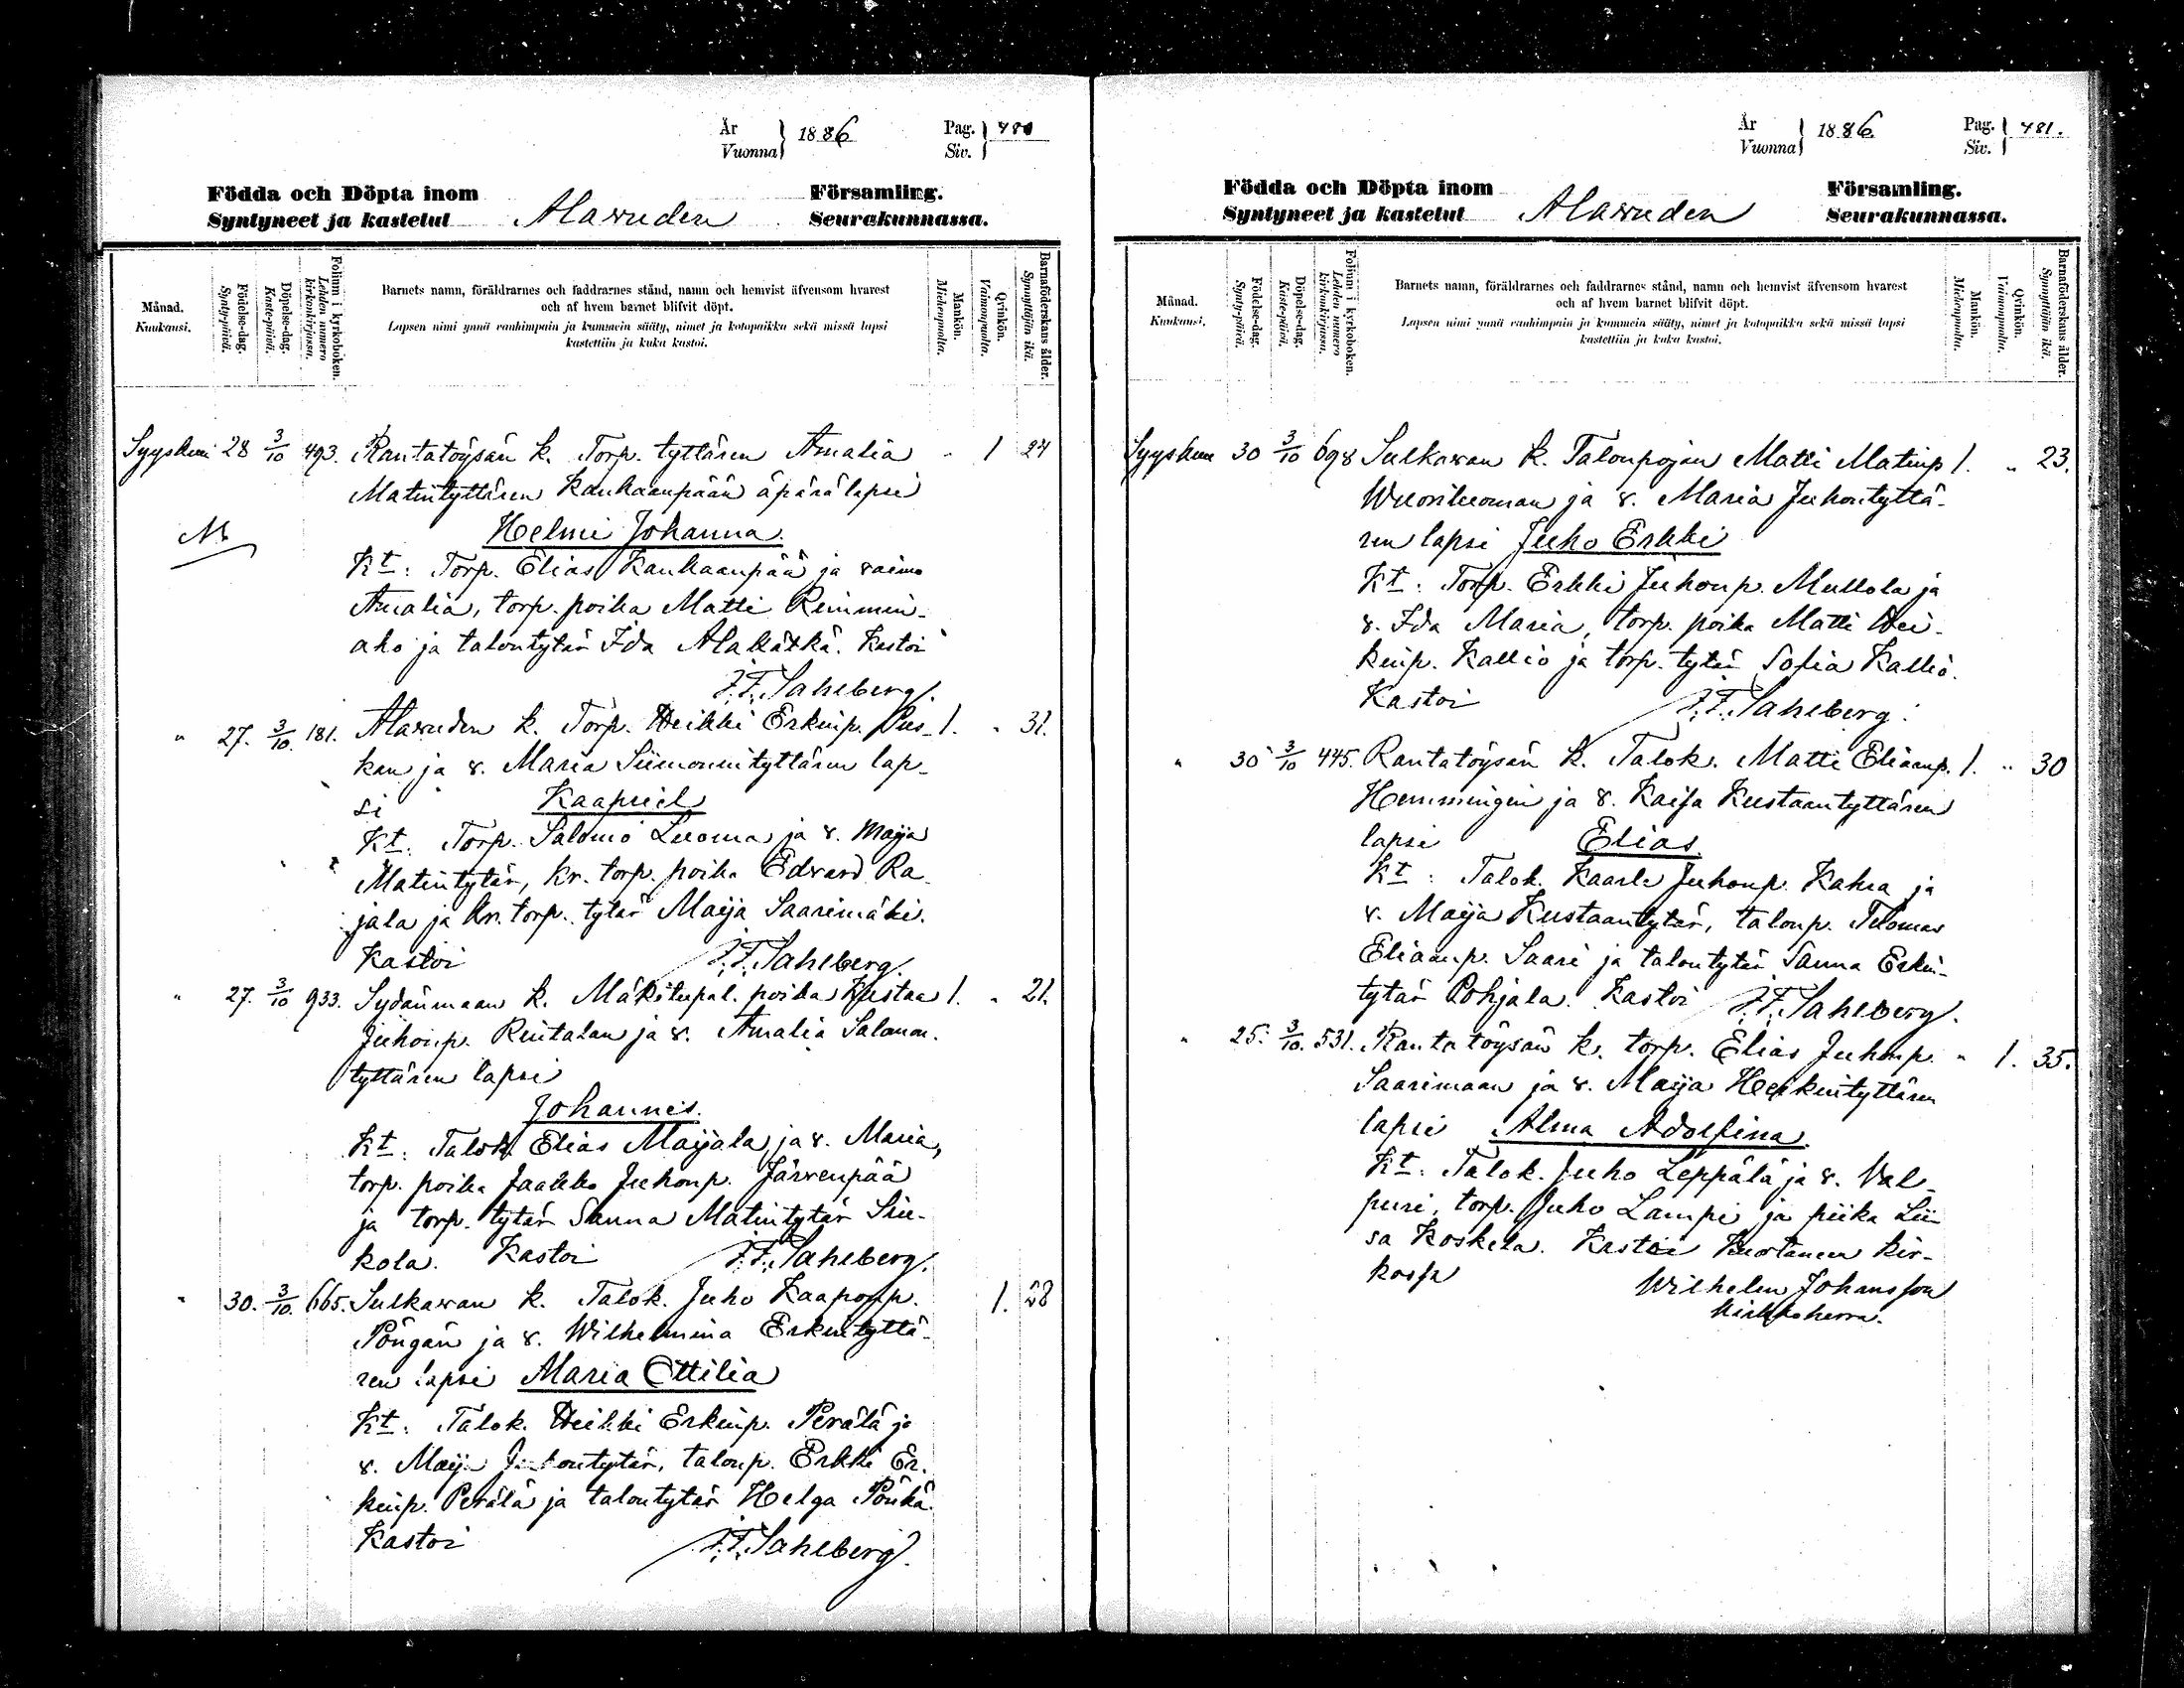 År Vuonna } 1886 Pag. Siv. } 480
Födda och Döpta inom Församling.
Syntyneet ja kastetut Alawuden Seurakunnassa.
Månad. Kuukausi.
Födelse-dag. Synty-päivä.
Döpelse-dag. Kaste-päivä.
Folium i kyrkoboken. Lehden numero kirkonkirjassa.
Barnets namn, föräldrarnes och faddrarnes stånd, namn och hemvist äfvensom hvarest
och af hvem barnet blifvit döpt.
Lapsen nimi ynnä vanhimpain ja kummein sääty, nimet ja kotopaikka sekä missä lapsi
kastettiin ja kuka kastoi.
Mankön. Miehenpuolta.
Qvinkön. Vaimonpuolta.
Barnaföderskans ålder. Synnyttäjän ikä.
Syyskuu 28 3/10 493. Rantatöysän k. Torp. tyttären Amalia " 1 24
Matintyttären Kankaanpään äpärälapsi
Helmi Johanna.
Kt: Torp. Elias Kankaanpää ja vaimo
Amalia, torp. poika Matti Rimmin-
aho ja talontytär Ida Alakätkä. Kastoi
J. F. Sahlberg.
" 27. 3/10. 181. Alawuden k. Torp. Heikki Erkinp. Pus- 1. " 31.
kan ja v. Maria Siimonintyttären lap-
si Kaapriel
Kt. Torp. Salomo Luoma ja v. Maija
Matintytär, kr. torp. poika Edvard Ra-
jala ja kr. torp. tytär Maija Saarimäki.
Kastoi J. F. Sahlberg.
" 27. 3/10 933. Sydänmaan k. Mäkitupal. poika Kustaa 1. " 21.
Juhonp. Rintalan ja v. Amalia Salomon.
tyttären lapsi
Johannes.
Kt: Talok. Elias Maijala ja v. Maria,
torp. poika Jaakko Juhonp. Järvenpää
ja torp. tytär Sanna Matintytär Siu-
kola. Kastoi J. F. Sahlberg.
" 30. 3/10. 665. Sulkavan k. Talok. Juho Kaaponp. 1. 28
Pöngän ja v. Wilhelmina Erkintyttä-
ren lapsi Maria Ottilia
Kt: Talok. Heikki Erkinp. Perälä ja
v. Maija Juhontytär, talonp. Erkki Er-
kinp. Perälä ja talontytär Helga Pönkä.
Kastoi J. F. Sahlberg.
År Vuonna } 1886. Pag. Siv. } 481.
Födda och Döpta inom Församling.
Syntyneet ja kastetut Alawuden Seurakunnassa.
Månad. Kuukausi.
Födelse-dag. Synty-päivä.
Döpelse-dag. Kaste-päivä.
Folium i kyrkoboken. Lehden numero kirkonkirjassa.
Barnets namn, föräldrarnes och faddrarnes stånd, namn och hemvist äfvensom hvarest
och af hvem barnet blifvit döpt.
Lapsen nimi ynnä vanhimpain ja kummein sääty, nimet ja kotopaikka sekä missä lapsi
kastettiin ja kuka kastoi.
Mankön. Miehenpuolta.
Qvinkön. Vaimonpuolta.
Barnaföderskans ålder. Synnyttäjän ikä.
Syyskuu 30 3/10 698 Sulkavan k. Talonpojan Matti Matinp 1. " 23.
Wuoriluoman ja v. Maria Juhontyttä-
ren lapsi Juho Erkki
Kt: Torp. Erkki Juhonp. Mullola ja
v. Ida Maria, torp. poika Matti Hei-
kinp. Kallio ja torp. tytär Sofia Kallio.
Kastoi J. F. Sahlberg.
" 30 3/10 445. Rantatöysän k. Talok. Matti Eliaanp. 1. " 30
Hemmingin ja v. Kaisa Kustaantyttären
lapsi Elias.
Kt: Talok. Kaarle Juhonp. Kahra ja
v. Maija Kustaantytär, talonp. Tuomas
Eliaanp. Saari ja talontytär Sanna Erkin-
tytär Pohjala. Kastoi J. F. Sahlberg.
" 25. 3/10. 531. Rantatöysän k. torp. Elias Juhonp. " 1. 35.
Saarimaan ja v. Maija Heikintyttären
lapsi Alma Adolfina.
Kt: Talok. Juho Leppälä ja v. Val-
puri, torp. Juho Lampi ja piika Lii-
sa Koskela. Kastoi Kuortaneen kir-
kossa Wilhelm Johansson
Kirkkoherra.